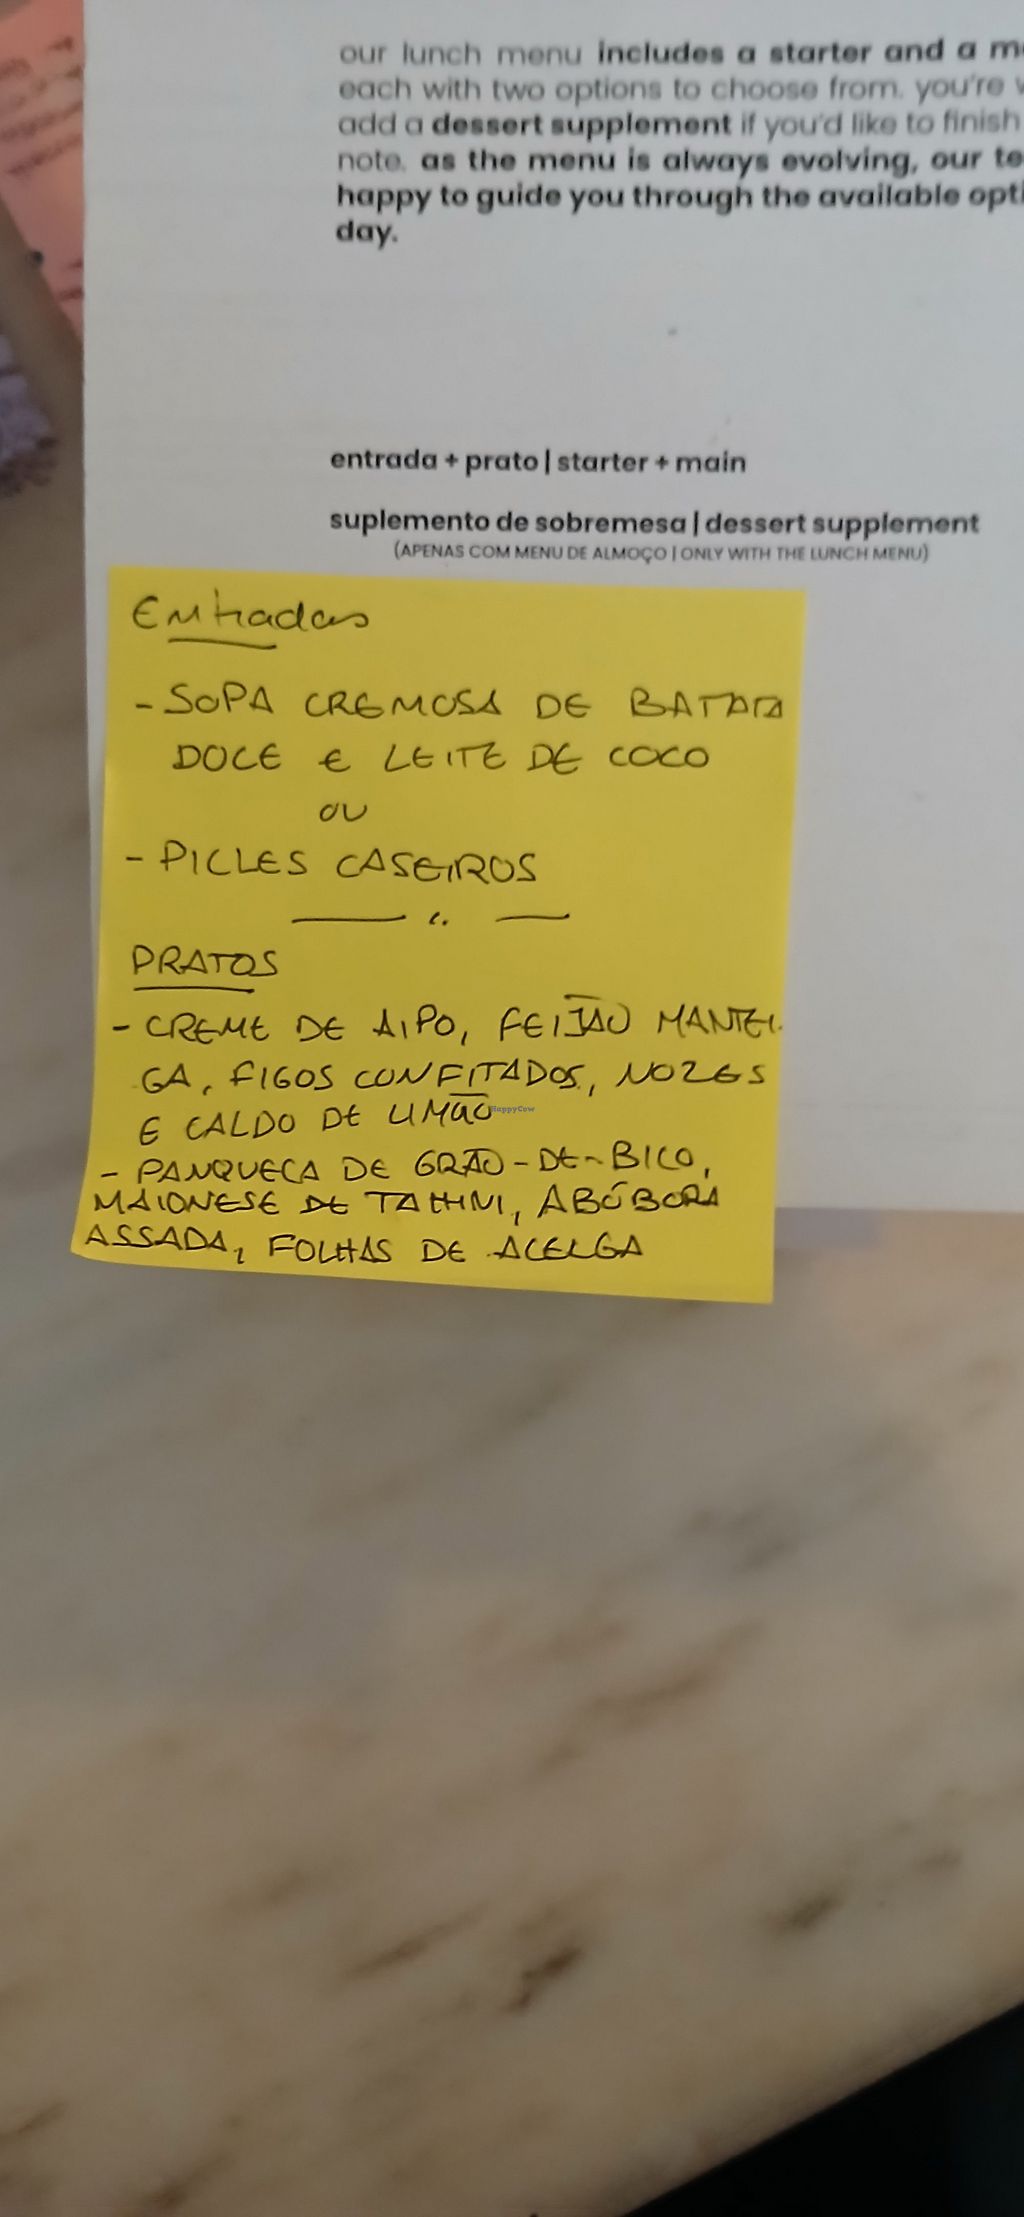 our lunch menu includes a starter and a
each with two options to choose from. you're
add a dessert supplement if you'd like to finish
note. as the menu is always evolving, our
happy to guide you through the available
day.
entrada + prato | starter + main
suplemento de sobremesa | dessert supplement
(APENAS COM MENU DE ALMOÇO | ONLY WITH THE LUNCH MENU)
Entradas
- SOPA CREMOSA DE BATATA
DOCE E LEITE DE COCO
OU
- PICLES CASEIROS
PRATOS
- CREME DE AIPO, FEIJÃO MANTEI-
GA, FIGOS CONFITADOS, NOZES
E CALDO DE LIMÃO
HappyCow
- PANQUECA DE GRÃO-DE-BICO,
MAIONESE DE TAHINI, ABÓBORA
ASSADA, FOLHAS DE ACELGA